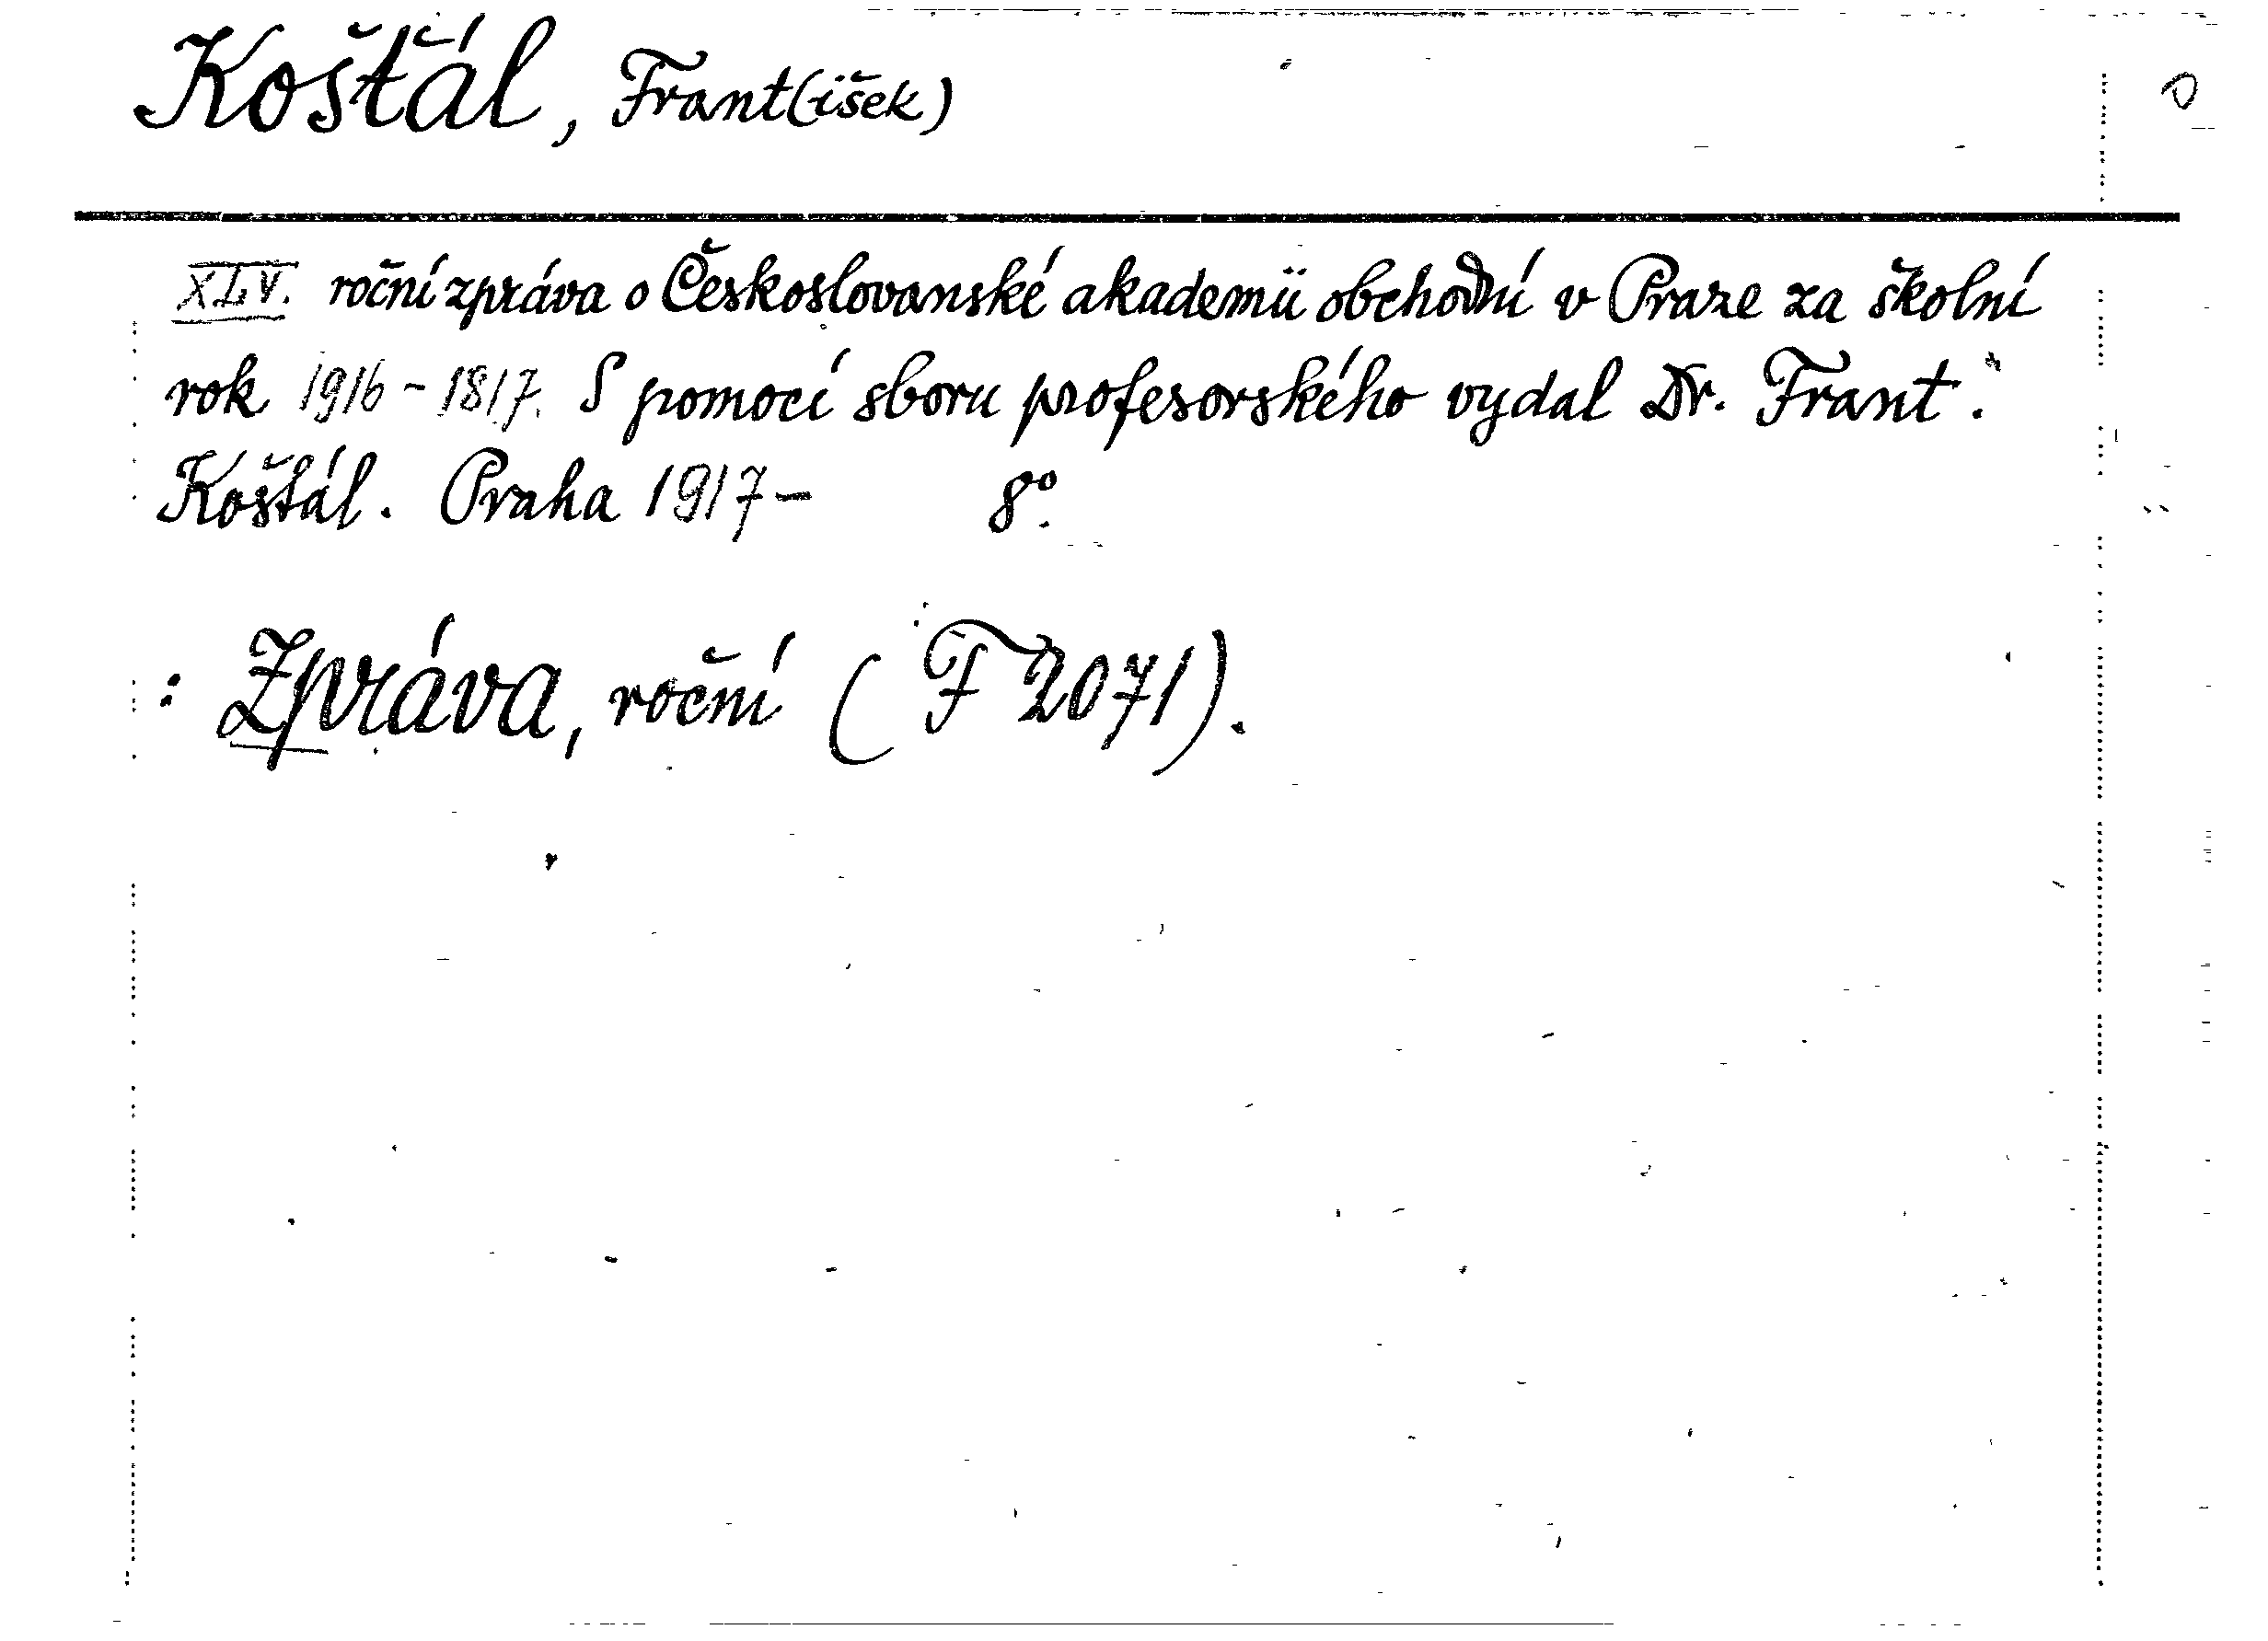 Košťál, Frant(išek)
XLV. roční zpráva o Českoslovanské akademii obchodní v Praze za školní
rok 1916-1817. S pomocí sboru profesorského vydal Dr. Frant.
Košťál. Praha 1917- 8°.
: Zpráva, roční (F 2071).